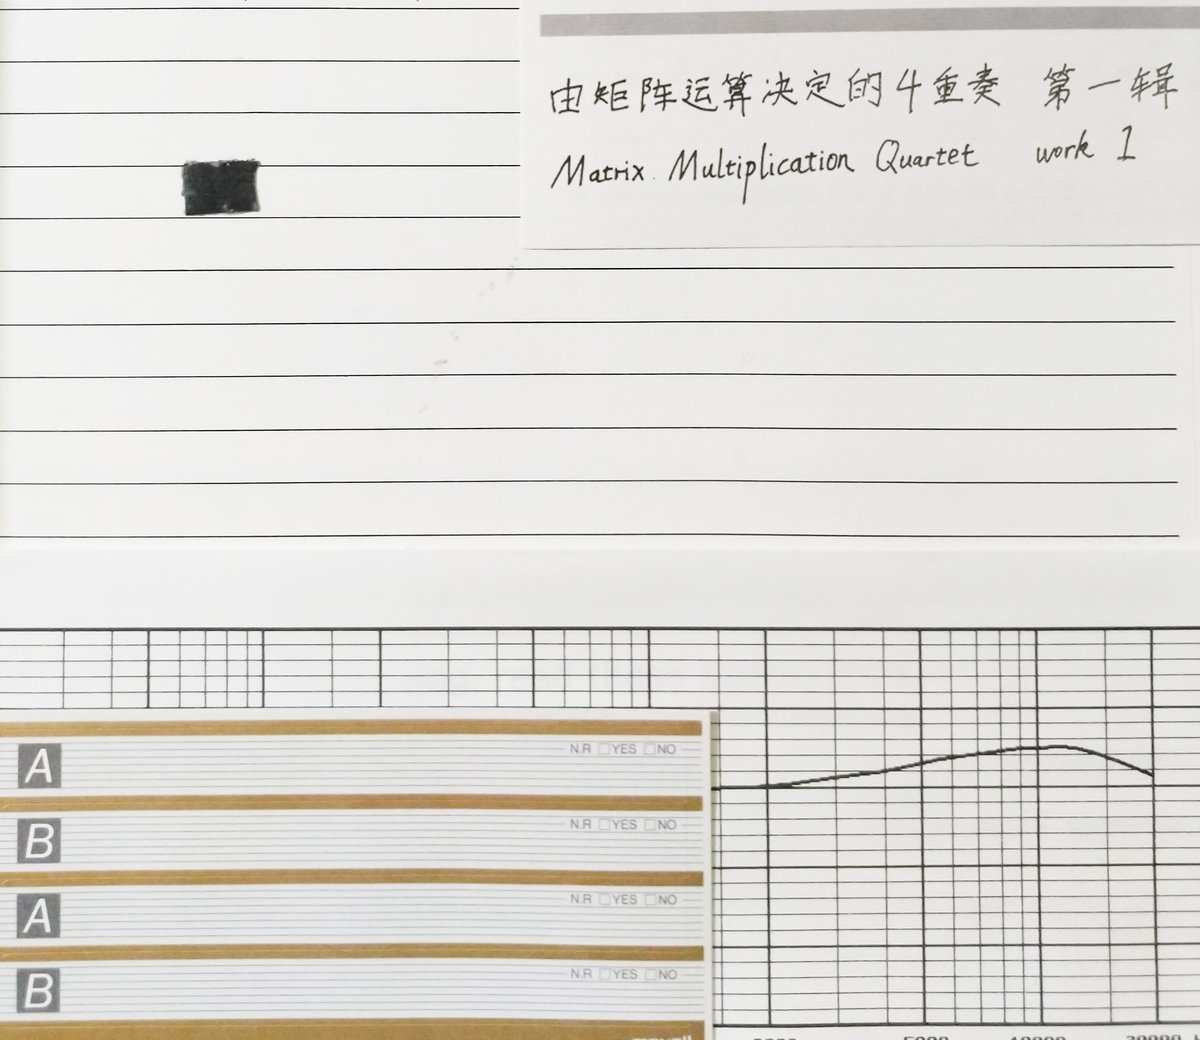 由矩阵运算决定的4重奏 第一辑
Matrix Multiplication Quartet work 1
A N.R □YES □NO
B N.R □YES □NO
A N.R □YES □NO
B N.R □YES □NO
maxell
5000 10000 20000